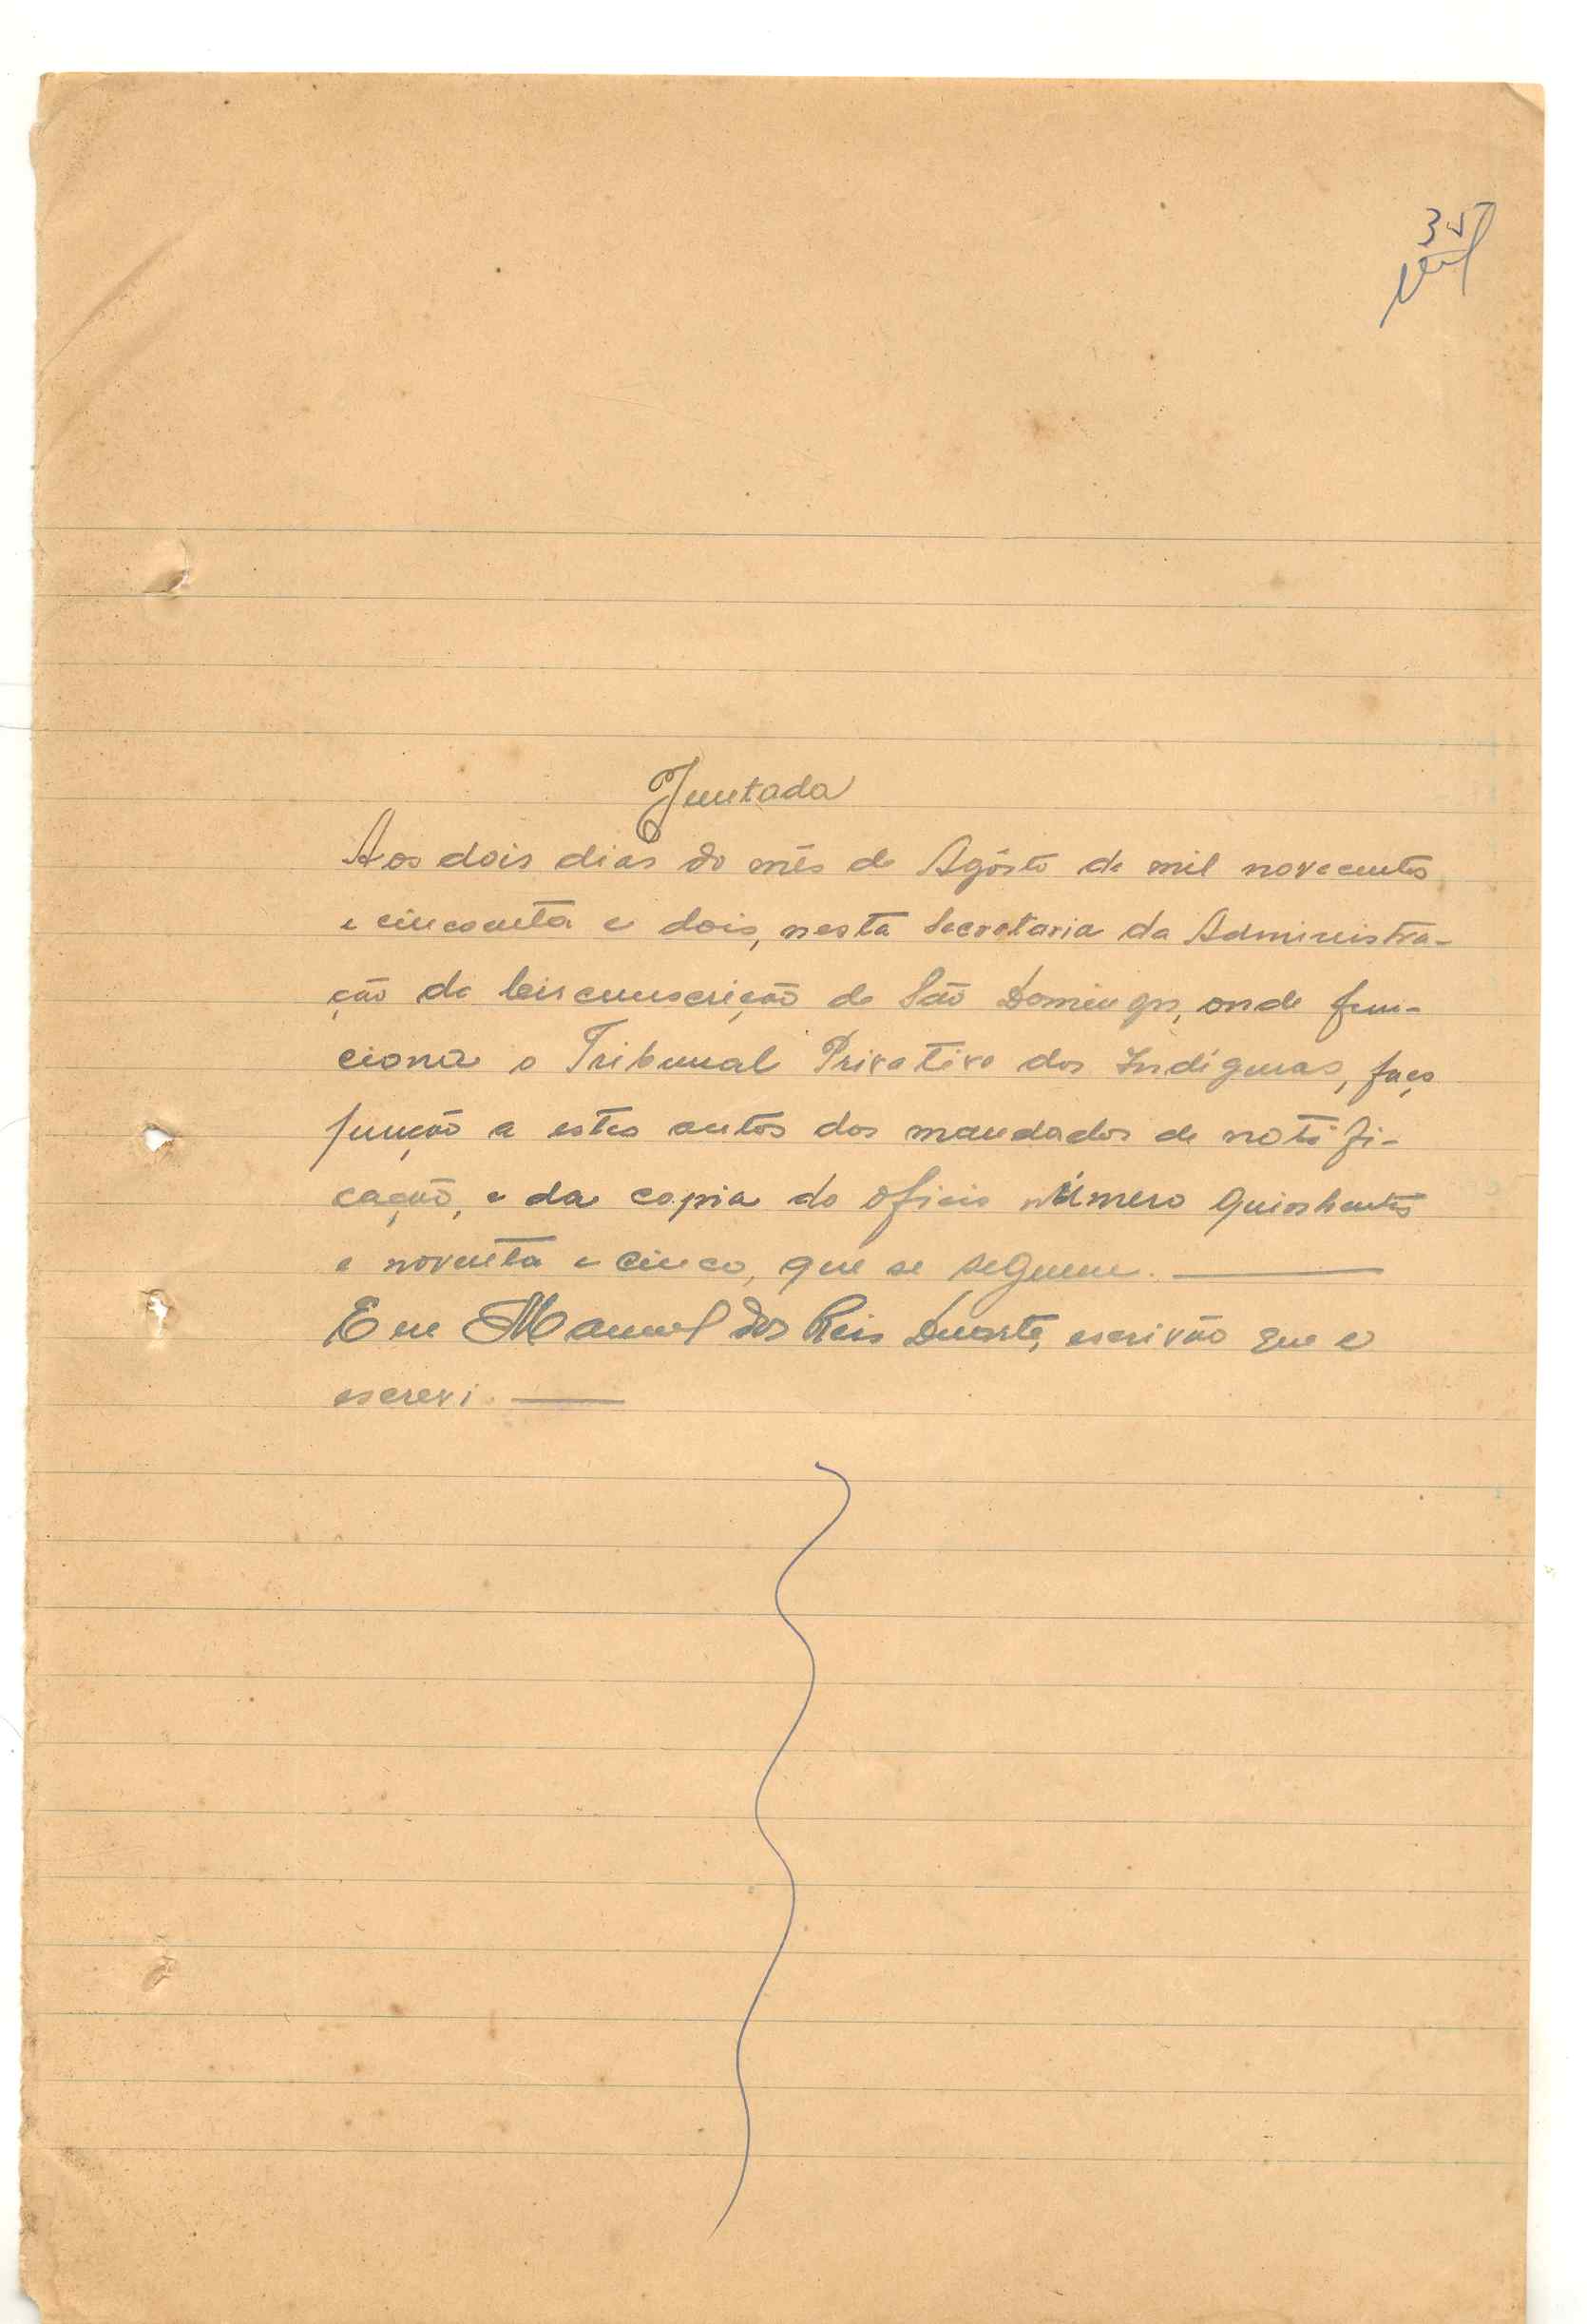 35
Juntada
Aos dois dias do mês de Agôsto de mil novecentos
e cincoenta e dois, nesta Secretaria da Administra-
ção da Circunscrição de São Domingos, onde fun-
ciona o Tribunal Privativo dos Indígenas, faço
junção a estes autos dos mandados de notifi-
cação, e da copia do oficio número quinhentos
e noventa e cinco, que se seguem.
E eu Manuel dos Reis Duarte, escrivão que o
escrevi.